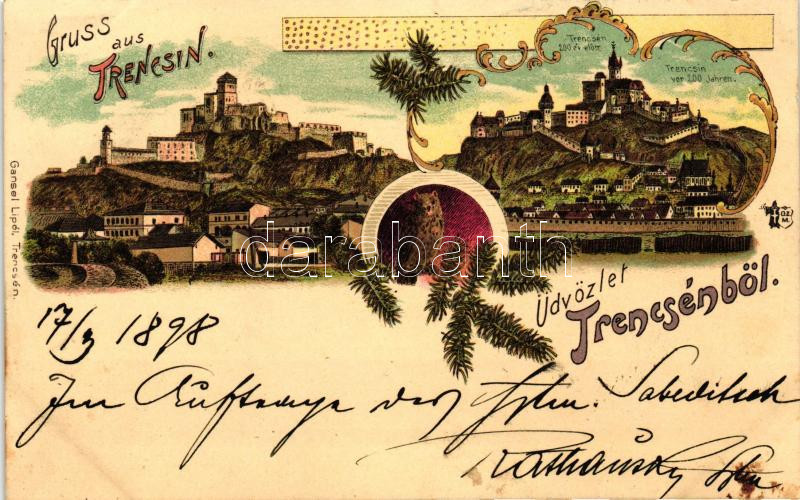 Gruss
aus
TRENCSIN.
Trencsén
200 év előtt.
Trencsin
vor 200 Jahren.
Gansel Lipót, Trencsén.
darabanth
Üdvözlet
Trencsénböl.
17/3 1898
Im Auftrage des Hptm. Sabeditsch